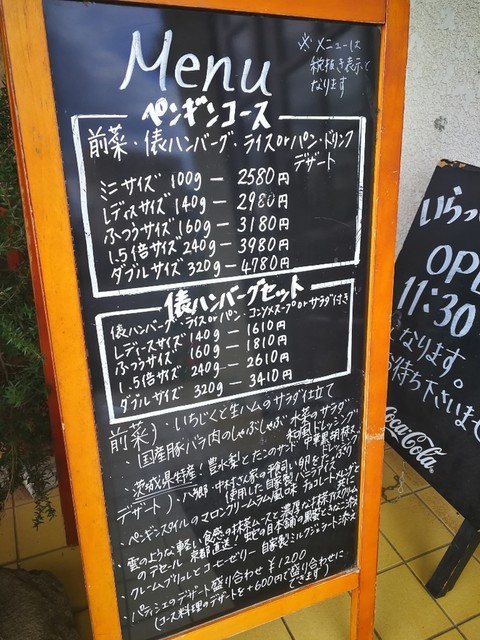 Menu
※ メニューは
税抜き表示と
なります
ペンギンコース
前菜・俵ハンバーグ・ライスorパン・ドリンク
デザート
ミニサイズ 100g ― 2580円
レディスサイズ 140g ― 2980円
ふつうサイズ 160g ― 3180円
1.5倍サイズ 240g ― 3980円
ダブルサイズ 320g ― 4780円
俵ハンバーグセット
俵ハンバーグ・ライスorパン・コンソメスープorサラダ付き
レディースサイズ 140g ― 1610円
ふつうサイズ 160g ― 1810円
1.5倍サイズ 240g ― 2610円
ダブルサイズ 320g ― 3410円
前菜)・いちじくと生ハムのサラダ仕立て
・国産豚バラ肉のしゃぶしゃぶ 水菜のサラダ
和風ドレッシング
・茨城県特産!豊水梨とたこのサラダ 中華風胡麻
ドレッシング
デザート)・八郷 中村さん家の平飼い卵をたっぷり
使用した自家製 バニラアイス
・ペンギンスタイルのマロンクリームラム風味 チョコレートメレンゲと共に
・雲のような軽い食感の抹茶ムースと濃厚な抹茶アイスクリーム
のデセール 京都直送
・クレームブリュレとコーヒーゼリー 自家製ミルクジェラート添え
・パティシエのデザート盛り合わせ ¥1200
(コース料理のデザートを+600円で盛り合わせに
できます)
いらっ
OPE
11:30
なります。
お待ち下さいませ
Coca-Cola